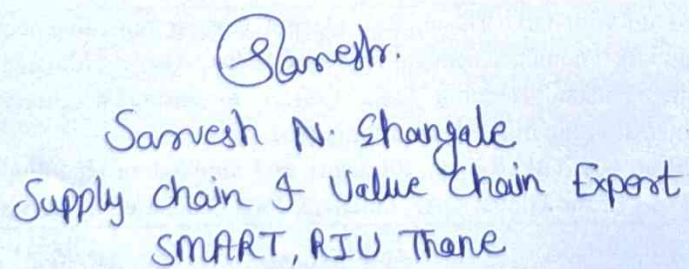 Sarvesh
Sarvesh N. Ghangale
Supply chain & Value Chain Expert
SMART, RIU Thane